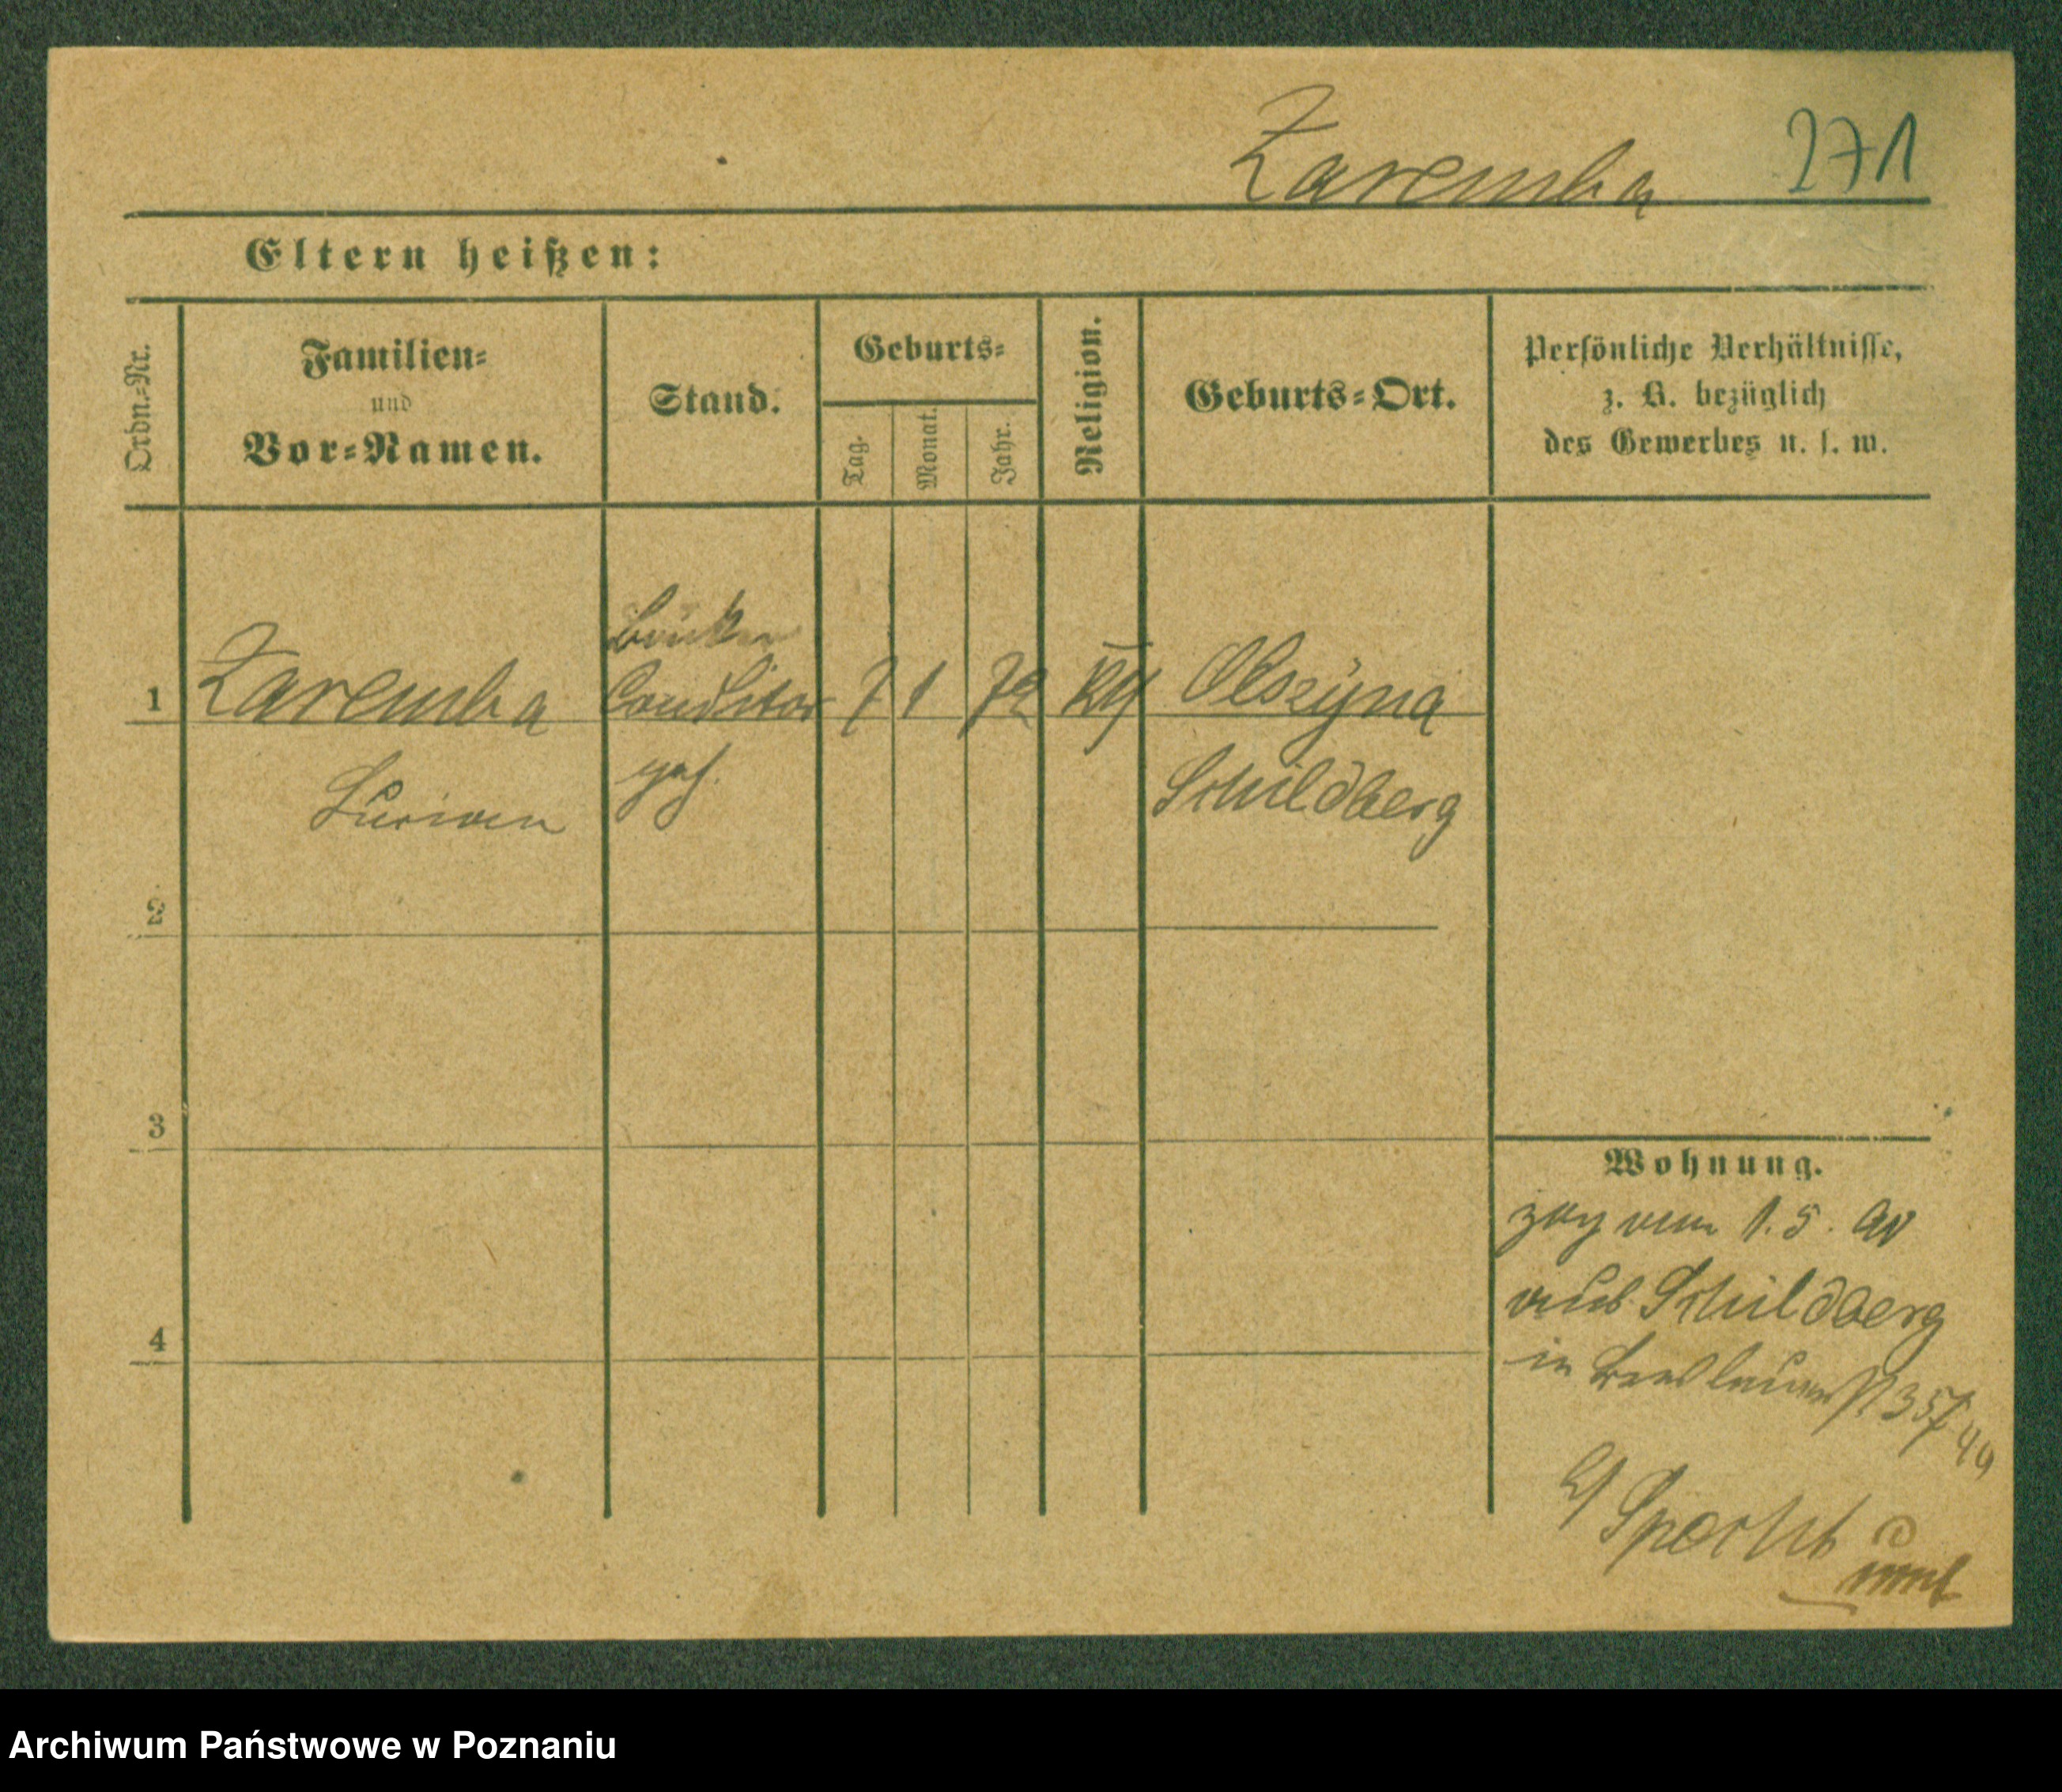 Zaremba 271
Eltern heißen:
Ordn.=Nr.
Familien=
und
Vor=Namen.
Stand.
Geburts=
Tag.
Monat.
Jahr.
Religion.
Geburts=Ort.
Persönliche Verhältnisse,
z. B. bezüglich
des Gewerbes u. s. w.
1 Zaremba Conditor 7 1 72 Olszyna
Schildberg
2
3
4
Wohnung.
zog vom 1. 5.
aus Schildberg
in
Specht
Archiwum Państwowe w Poznaniu